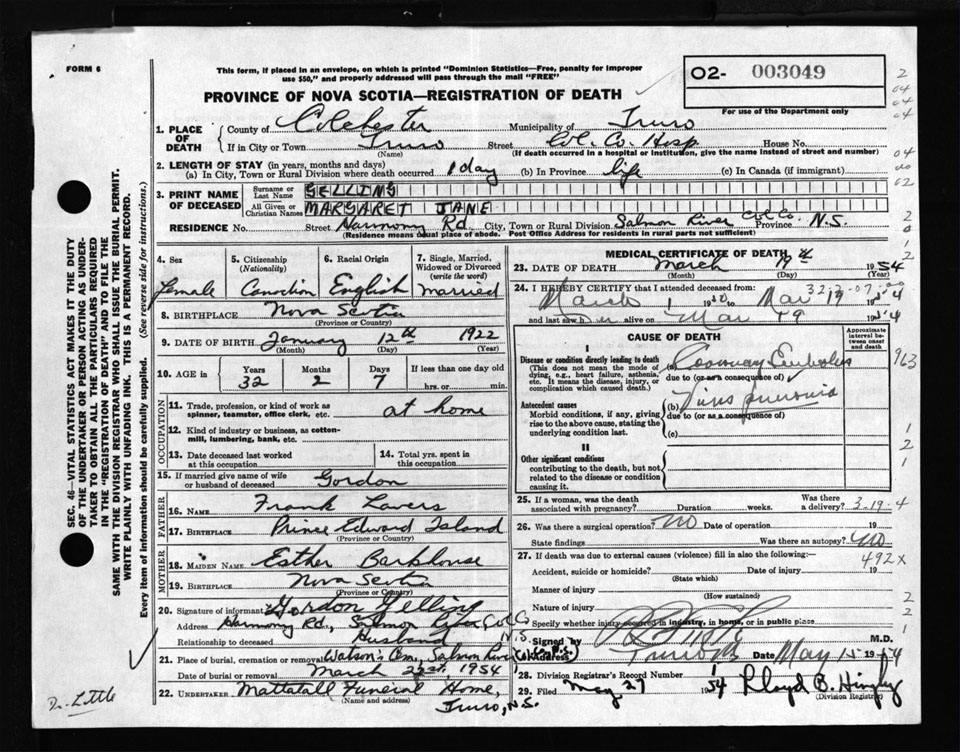 FORM 6
This form, if placed in an envelope, on which is printed "Dominion Statistics—Free, penalty for improper use $50," and properly addressed will pass through the mail "FREE"
O2- 003049
For use of the Department only
PROVINCE OF NOVA SCOTIA—REGISTRATION OF DEATH
1. PLACE OF DEATH
County of Colchester Municipality of Truro
If in City or Town Truro Street Col. Co. Hosp House No.
(Name) (If death occurred in a hospital or institution, give the name instead of street and number)
2. LENGTH OF STAY (in years, months and days)
(a) In City, Town or Rural Division where death occurred 1 day (b) In Province life (c) In Canada (if immigrant)
3. PRINT NAME OF DECEASED
Surname or Last Name GELLING
All Given or Christian Names MARGARET JANE
RESIDENCE No. Street Harmony Rd. City, Town or Rural Division Salmon River Col Co. Province N.S.
(Residence means usual place of abode. Post Office Address for residents in rural parts not sufficient)
4. Sex Female
5. Citizenship (Nationality) Canadian
6. Racial Origin English
7. Single, Married, Widowed or Divorced (write the word) married
8. BIRTHPLACE Nova Scotia
(Province or Country)
9. DATE OF BIRTH January 12th 1922
(Month) (Day) (Year)
10. AGE in Years 32 Months 2 Days 7 If less than one day old hrs. or min.
OCCUPATION
11. Trade, profession, or kind of work as spinner, teamster, office clerk, etc. at home
12. Kind of industry or business, as cotton-mill, lumbering, bank, etc.
13. Date deceased last worked at this occupation
14. Total yrs. spent in this occupation
15. If married give name of wife or husband of deceased Gordon
FATHER
16. NAME Frank Lavers
17. BIRTHPLACE Prince Edward Island
(Province or Country)
MOTHER
18. MAIDEN NAME Esther Barkhouse
19. BIRTHPLACE Nova Scotia
(Province or Country)
20. Signature of informant Gordon Gelling
Address Harmony Rd., Salmon River Col Co N.S.
Relationship to deceased Husband
21. Place of burial, cremation or removal Watson's Cem., Salmon River
Date of burial or removal March 22nd 1954
22. UNDERTAKER Mattatall Funeral Home,
(Name and address)
Truro, N.S.
MEDICAL CERTIFICATE OF DEATH
23. DATE OF DEATH March 1954
(Month) (Day) (Year)
24. I HEREBY CERTIFY that I attended deceased from:
March 1 Mar 19 1954
and last saw her alive on Mar 19 1954
CAUSE OF DEATH
Approximate interval between onset and death
I
Disease or condition directly leading to death
(This does not mean the mode of dying, e.g., heart failure, asthenia, etc. It means the disease, injury, or complication which caused death.)
(a) Coronary Embolus
due to (or as a consequence of)
Antecedent causes
Morbid conditions, if any, giving rise to the above cause, stating the underlying condition last.
(b) Virus pneumonia
due to (or as a consequence of)
(c)
II
Other significant conditions
contributing to the death, but not related to the disease or condition causing it.
25. If a woman, was the death associated with pregnancy? Duration weeks. Was there a delivery? 3-19-4
26. Was there a surgical operation? NO Date of operation 19
State findings Was there an autopsy? NO
27. If death was due to external causes (violence) fill in also the following:— 492X
Accident, suicide or homicide? Date of injury 19
(State which)
Manner of injury
(How sustained)
Nature of injury
Specify whether injury occurred in industry, in home, or in public place
Signed by M.D.
Address Truro NS Date May 15 1954
28. Division Registrar's Record Number
29. Filed May 27 1954 Lloyd B. Hingley
(Division Registrar)
SEC. 46—VITAL STATISTICS ACT MAKES IT THE DUTY OF THE UNDERTAKER OR PERSON ACTING AS UNDERTAKER TO OBTAIN ALL THE PARTICULARS REQUIRED IN THE "REGISTRATION OF DEATH" AND TO FILE THE SAME WITH THE DIVISION REGISTRAR WHO SHALL ISSUE THE BURIAL PERMIT.
WRITE PLAINLY WITH UNFADING INK. THIS IS A PERMANENT RECORD.
Every item of information should be carefully supplied. (See reverse side for instructions.)
Dr. Little